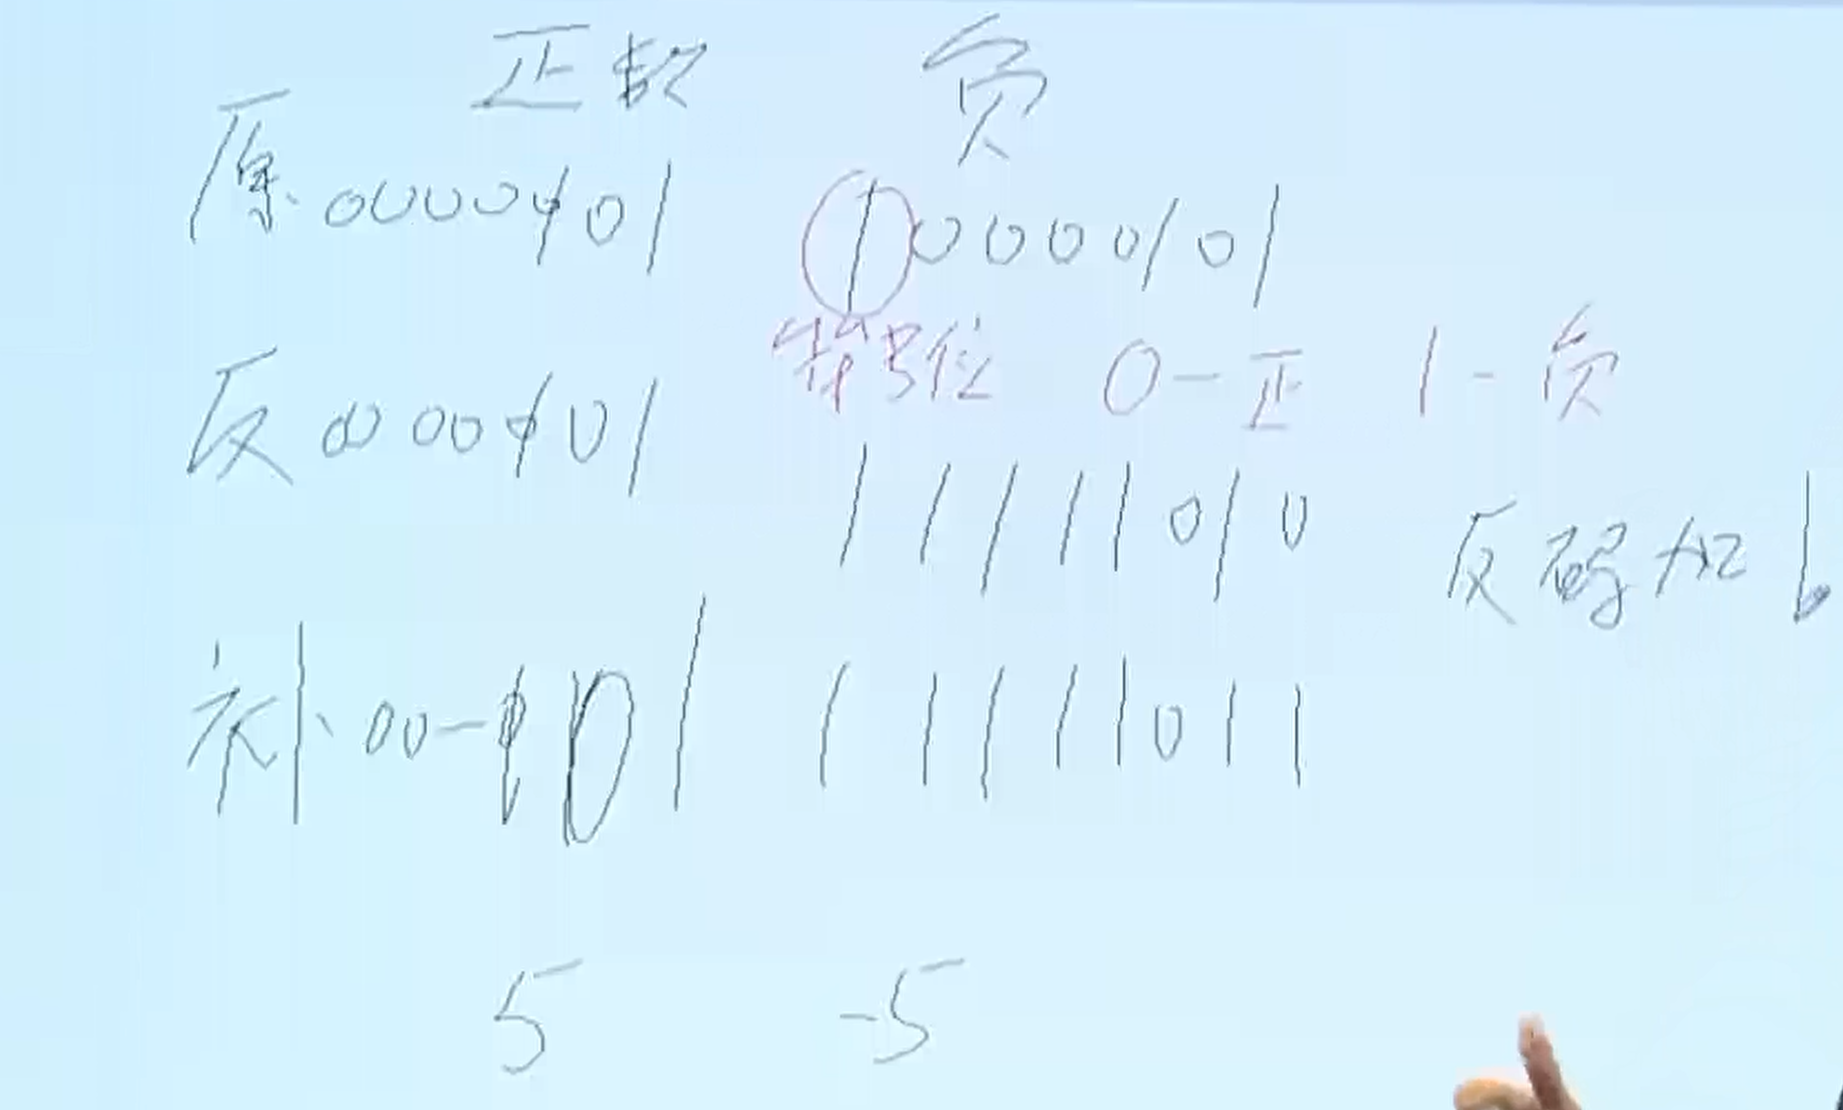 正数 负
原 00000101 10000101
符号位 0-正 1-负
反 00000101
11111010 反码加1
补 00-101 11111011
5 -5